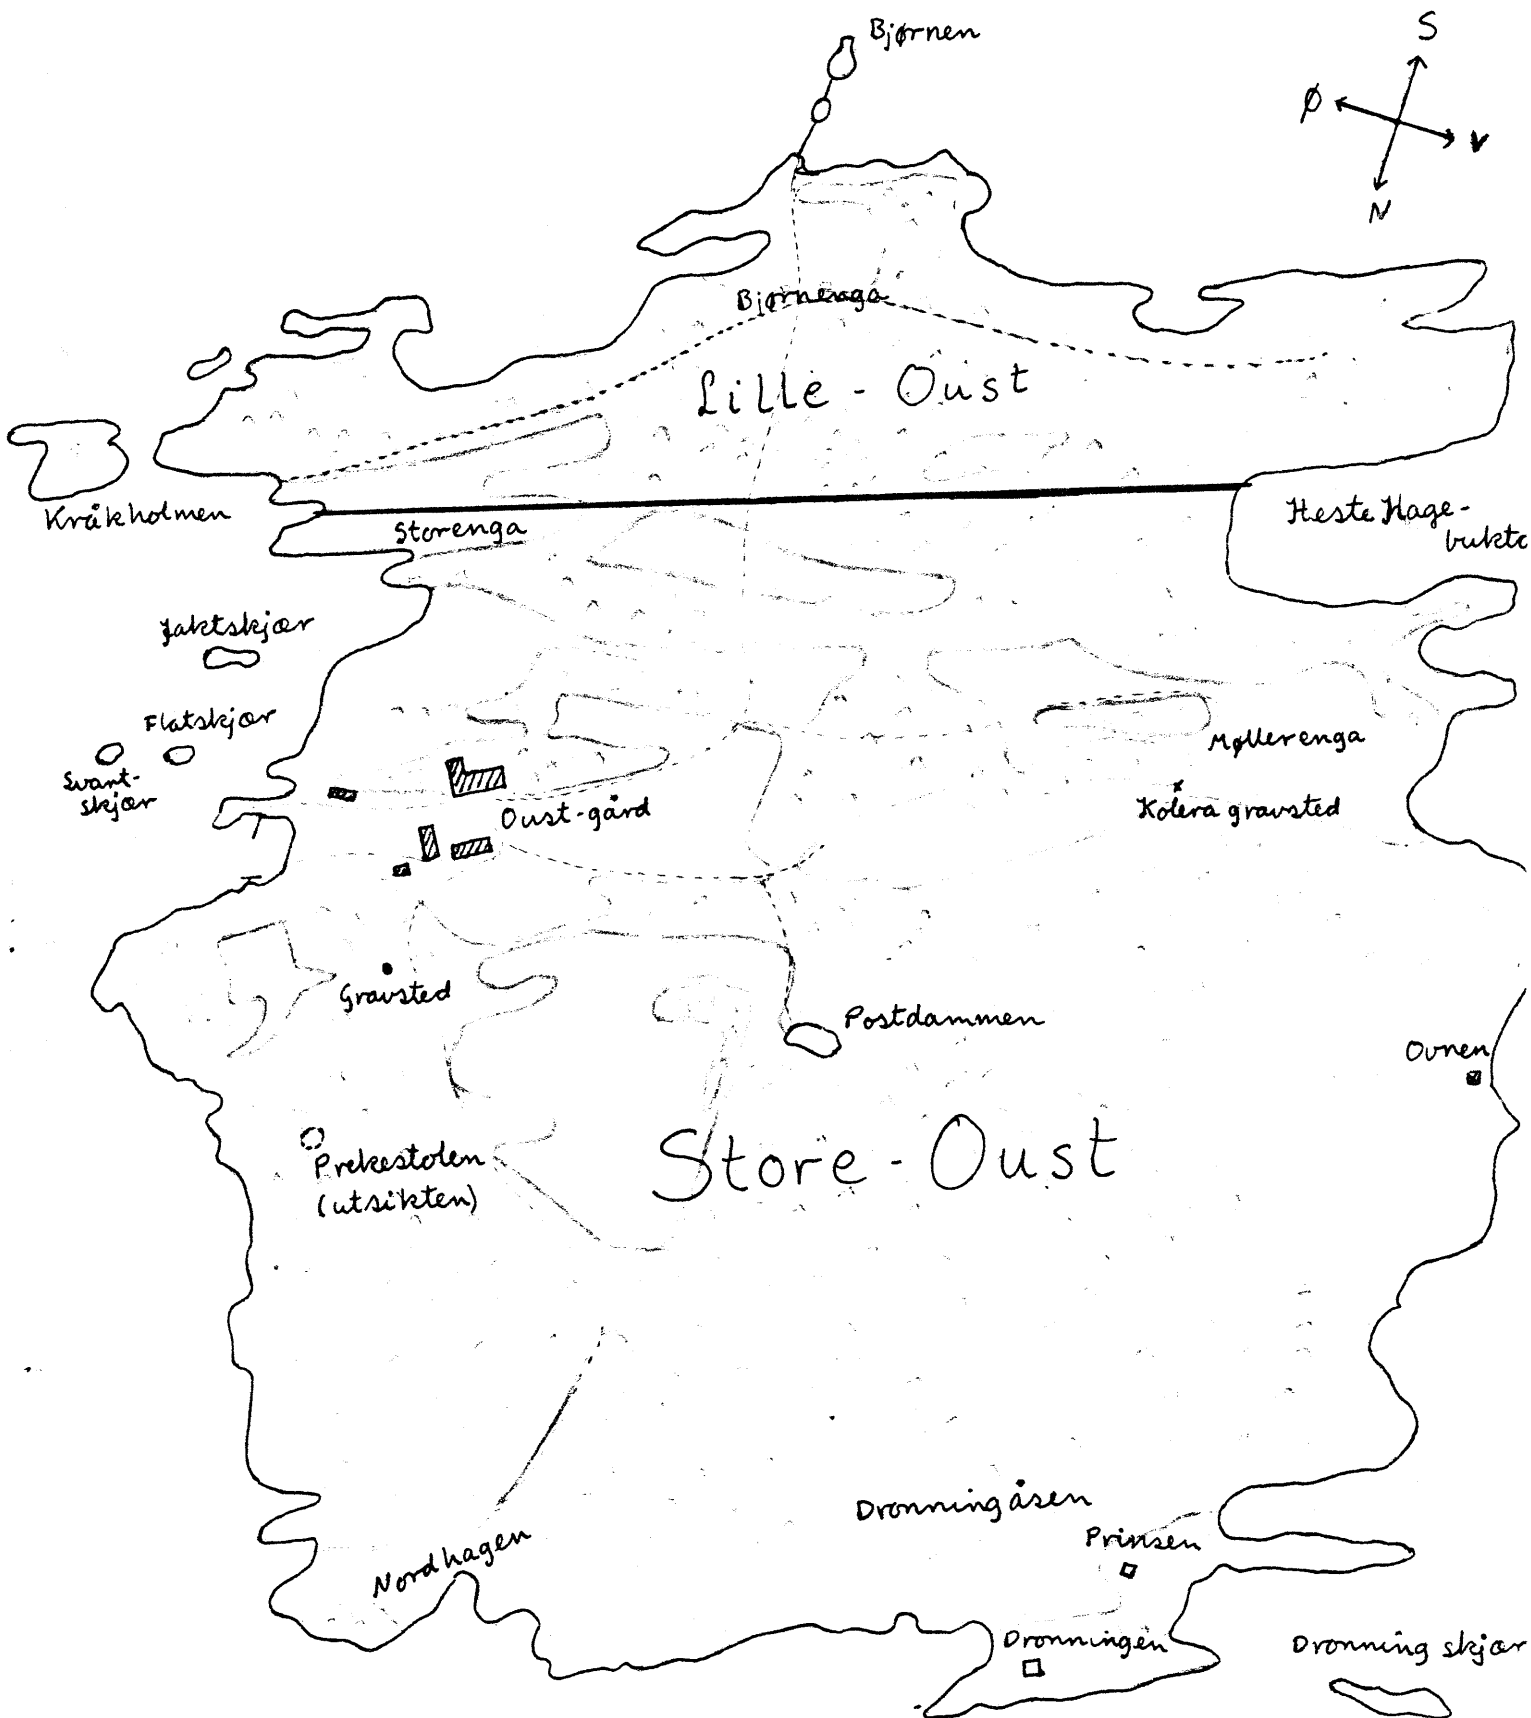 Bjørnen
S
Ø
V
N
Bjørnenga
Lille - Oust
Kråkholmen
Storenga
Heste Hage-
bukta
Jaktskjær
Flatskjær
Svart-
skjær
Møllerenga
Oust-gård
Kolera gravsted
Gravsted
Postdammen
Ovnen
Prekestolen
(utsikten)
Store - Oust
Dronningåsen
Prinsen
Nordhagen
Dronningen
Dronning skjær